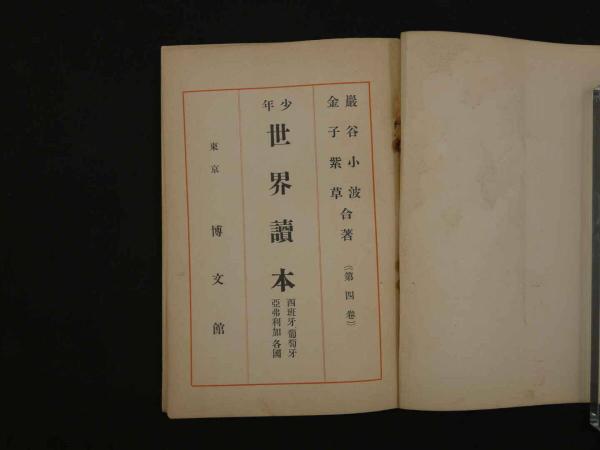 巖谷小波
金子紫草
合著
(第四卷)
少年
世界讀本
西班牙、葡萄牙
亞弗利加各國
東京
博文館